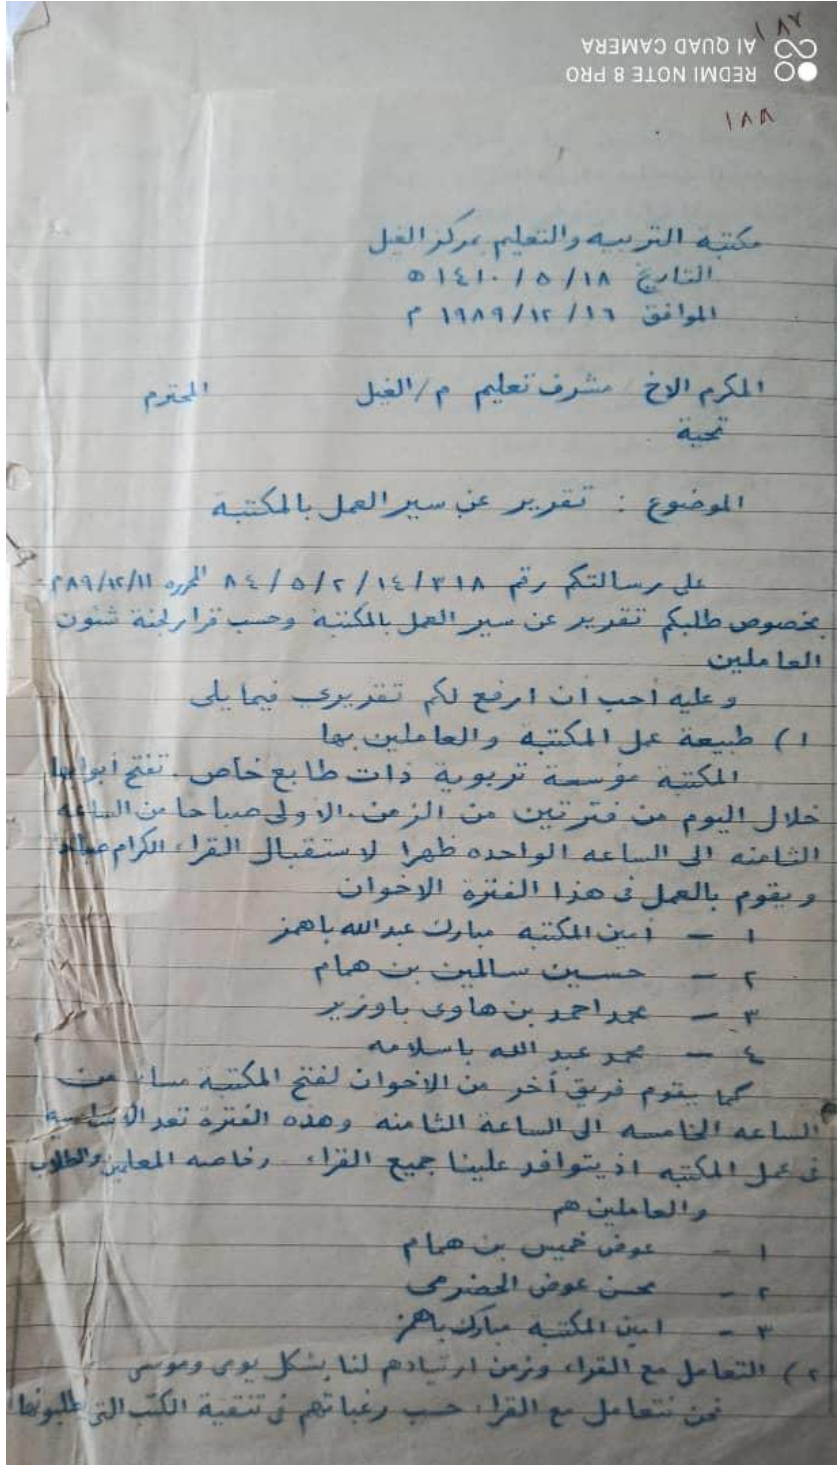 ١٨٧
REDMI NOTE 8 PRO
AI QUAD CAMERA
١٨٨
مكتبة التربيه والتعليم بمركز الغيل
التاريخ ١٨ / ٥ / ١٤١٠ ه
الموافق ١٦ / ١٢ / ١٩٨٩ م
المكرم الاخ / مشرف تعليم م/الغيل المحترم
تحية
الموضوع : تقرير عن سير العمل بالمكتبة
على رسالتكم رقم ٣١٨ / ١٤ / ٢ / ٥ / ٨٤ المحرره ١١/١٢/٨٩م
بخصوص طلبكم تقرير عن سير العمل بالمكتبة وحسب قرار لجنة شئون
العاملين
وعليه أحب ان ارفع لكم تقريري فيما يلي
١) طبيعة عمل المكتبة والعاملين بها
المكتبة مؤسسة تربوية ذات طابع خاص . تفتح أبوابها
خلال اليوم من فترتين من الزمن . الاولى صباحا من الساعه
الثامنه الى الساعه الواحده ظهرا لاستقبال القراء الكرام
ويقوم بالعمل في هذا الفترة الاخوان
١ - أمين المكتبه مبارك عبدالله باهمز
٢ - حسين سالمين بن همام
٣ - محمد احمد بن هاوى باوزير
٤ - محمد عبد الله باسلامه
كما يقوم فريق أخر من الاخوان لفتح المكتبه مساء من
الساعه الخامسه الى الساعة الثامنه وهذه الفترة تعد الاساسيه
في عمل المكتبه اذ يتوافد علينا جميع القراء وخاصه المعلمين والطلاب
والعاملين هم
١ - عوض خميس بن همام
٢ - محسن عوض الحضرمى
٣ - امين المكتبه مبارك باهمز
٢) التعامل مع القراء وزمن ارتيادهم لنا بشكل يومى وموسمى
نحن نتعامل مع القراء حسب رغباتهم في تنقية الكتب التى يطلبونها